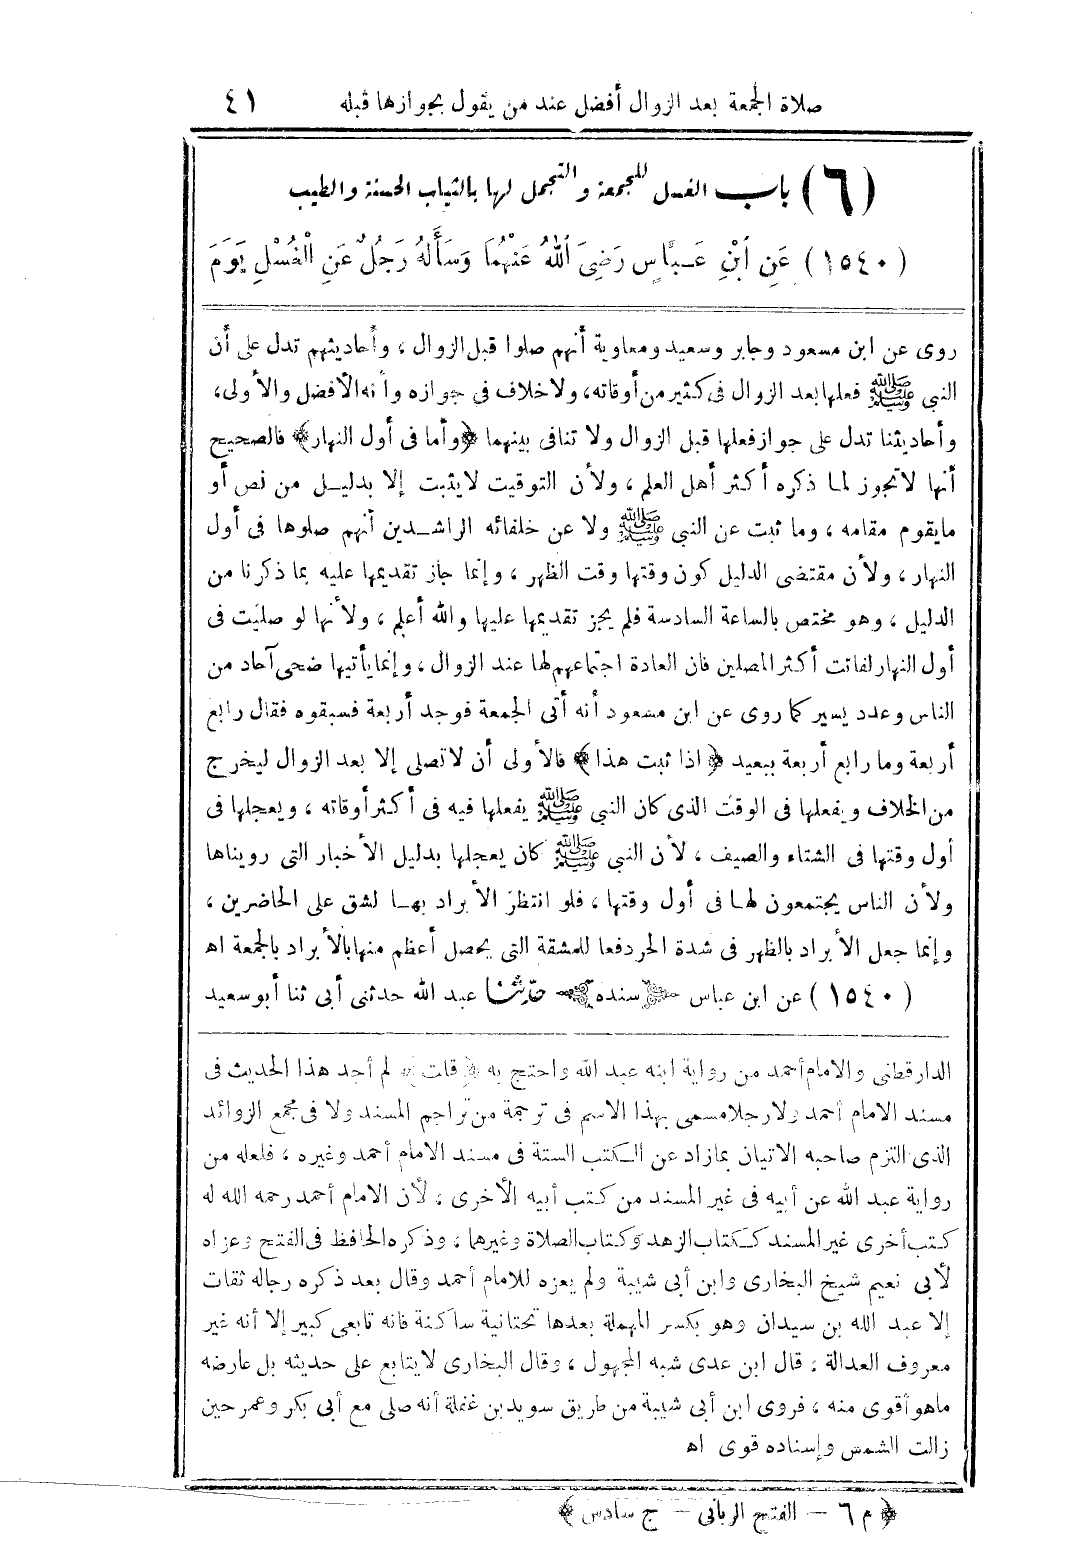 صلاة الجمعة بعد الزوال أفضل عند من يقول بجوازها قبله ٤١
(٦) باب الغسل للجمعة والتجمل لها بالثياب الحسنة والطيب
(١٥٤٠) عَنِ ابْنِ عَبَّاسٍ رَضِىَ اللهُ عَنْهُمَا وَسَأَلَهُ رَجُلٌ عَنِ الْغُسْلِ يَوْمَ
روى عن ابن مسعود وجابر وسعيد ومعاوية أنهم صلوا قبل الزوال ، وأحاديثهم تدل على أن
النبى ﷺ فعلها بعد الزوال فى كثير من أوقاته، ولاخلاف فى جوازه وأنه الأفضل والأولى،
وأحاديثنا تدل على جواز فعلها قبل الزوال ولا تنافى بينهما ﴿وأما فى أول النهار﴾ فالصحيح
أنها لاتجوز لما ذكره أكثر أهل العلم ، ولأن التوقيت لايثبت إلا بدليل من نص أو
مايقوم مقامه ، وما ثبت عن النبى ﷺ ولا عن خلفائه الراشدين أنهم صلوها فى أول
النهار ، ولأن مقتضى الدليل كون وقتها وقت الظهر ، وإنما جاز تقديمها عليه بما ذكرنا من
الدليل ، وهو مختص بالساعة السادسة فلم يجز تقديمها عليها والله أعلم ، ولأنها لو صليت فى
أول النهار لفاتت أكثر المصلين فان العادة اجتماعهم لها عند الزوال ، وإنما يأتيها ضحى آحاد من
الناس وعدد يسير كما روى عن ابن مسعود أنه أتى الجمعة فوجد أربعة فسبقوه فقال رابع
أربعة وما رابع أربعة ببعيد ﴿اذا ثبت هذا﴾ فالأولى أن لاتصلى إلا بعد الزوال ليخرج
من الخلاف ويفعلها فى الوقت الذى كان النبى ﷺ يفعلها فيه فى أكثر أوقاته ، ويعجلها فى
أول وقتها فى الشتاء والصيف ، لأن النبى ﷺ كان يعجلها بدليل الأخبار التى رويناها
ولأن الناس يجتمعون لها فى أول وقتها ، فلو انتظر الأبراد بها لشق على الحاضرين ،
وإنما جعل الأبراد بالظهر فى شدة الحر دفعا للمشقة التى يحصل أعظم منها بالأبراد بالجمعة اهـ
(١٥٤٠) عن ابن عباس ﴿سنده﴾ حدّثنا عبد الله حدثنى أبى ثنا أبو سعيد
الدارقطنى والامام أحمد من رواية ابنه عبد الله واحتج به ﴿قلت﴾ لم أجد هذا الحديث فى
مسند الامام أحمد ولا رجلا مسمى بهذا الاسم فى ترجمة من تراجم المسند ولا فى مجمع الزوائد
الذى التزم صاحبه الاتيان بمازاد عن الكتب الستة فى مسند الامام أحمد وغيره ، فلعله من
رواية عبد الله عن أبيه فى غير المسند من كتب أبيه الأخرى ، لأن الامام أحمد رحمه الله له
كتب أخرى غير المسند ككتاب الزهد وكتاب الصلاة وغيرها ، وذكره الحافظ فى الفتح وعزاه
لأبى نعيم شيخ البخارى وابن أبى شيبة ولم يعزه للامام أحمد وقال بعد ذكره رجاله ثقات
إلا عبد الله بن سيدان وهو بكسر المهملة بعدها تحتانية ساكنة فانه تابعى كبير إلا أنه غير
معروف العدالة ؛ قال ابن عدى شبه المجهول ، وقال البخارى لايتابع على حديثه بل عارضه
ماهو أقوى منه ، فروى ابن أبى شيبة من طريق سويد بن غفلة أنه صلى مع أبى بكر وعمر حين
زالت الشمس وإسناده قوى اهـ
﴿م ٦ – الفتح الربانى – ج سادس﴾